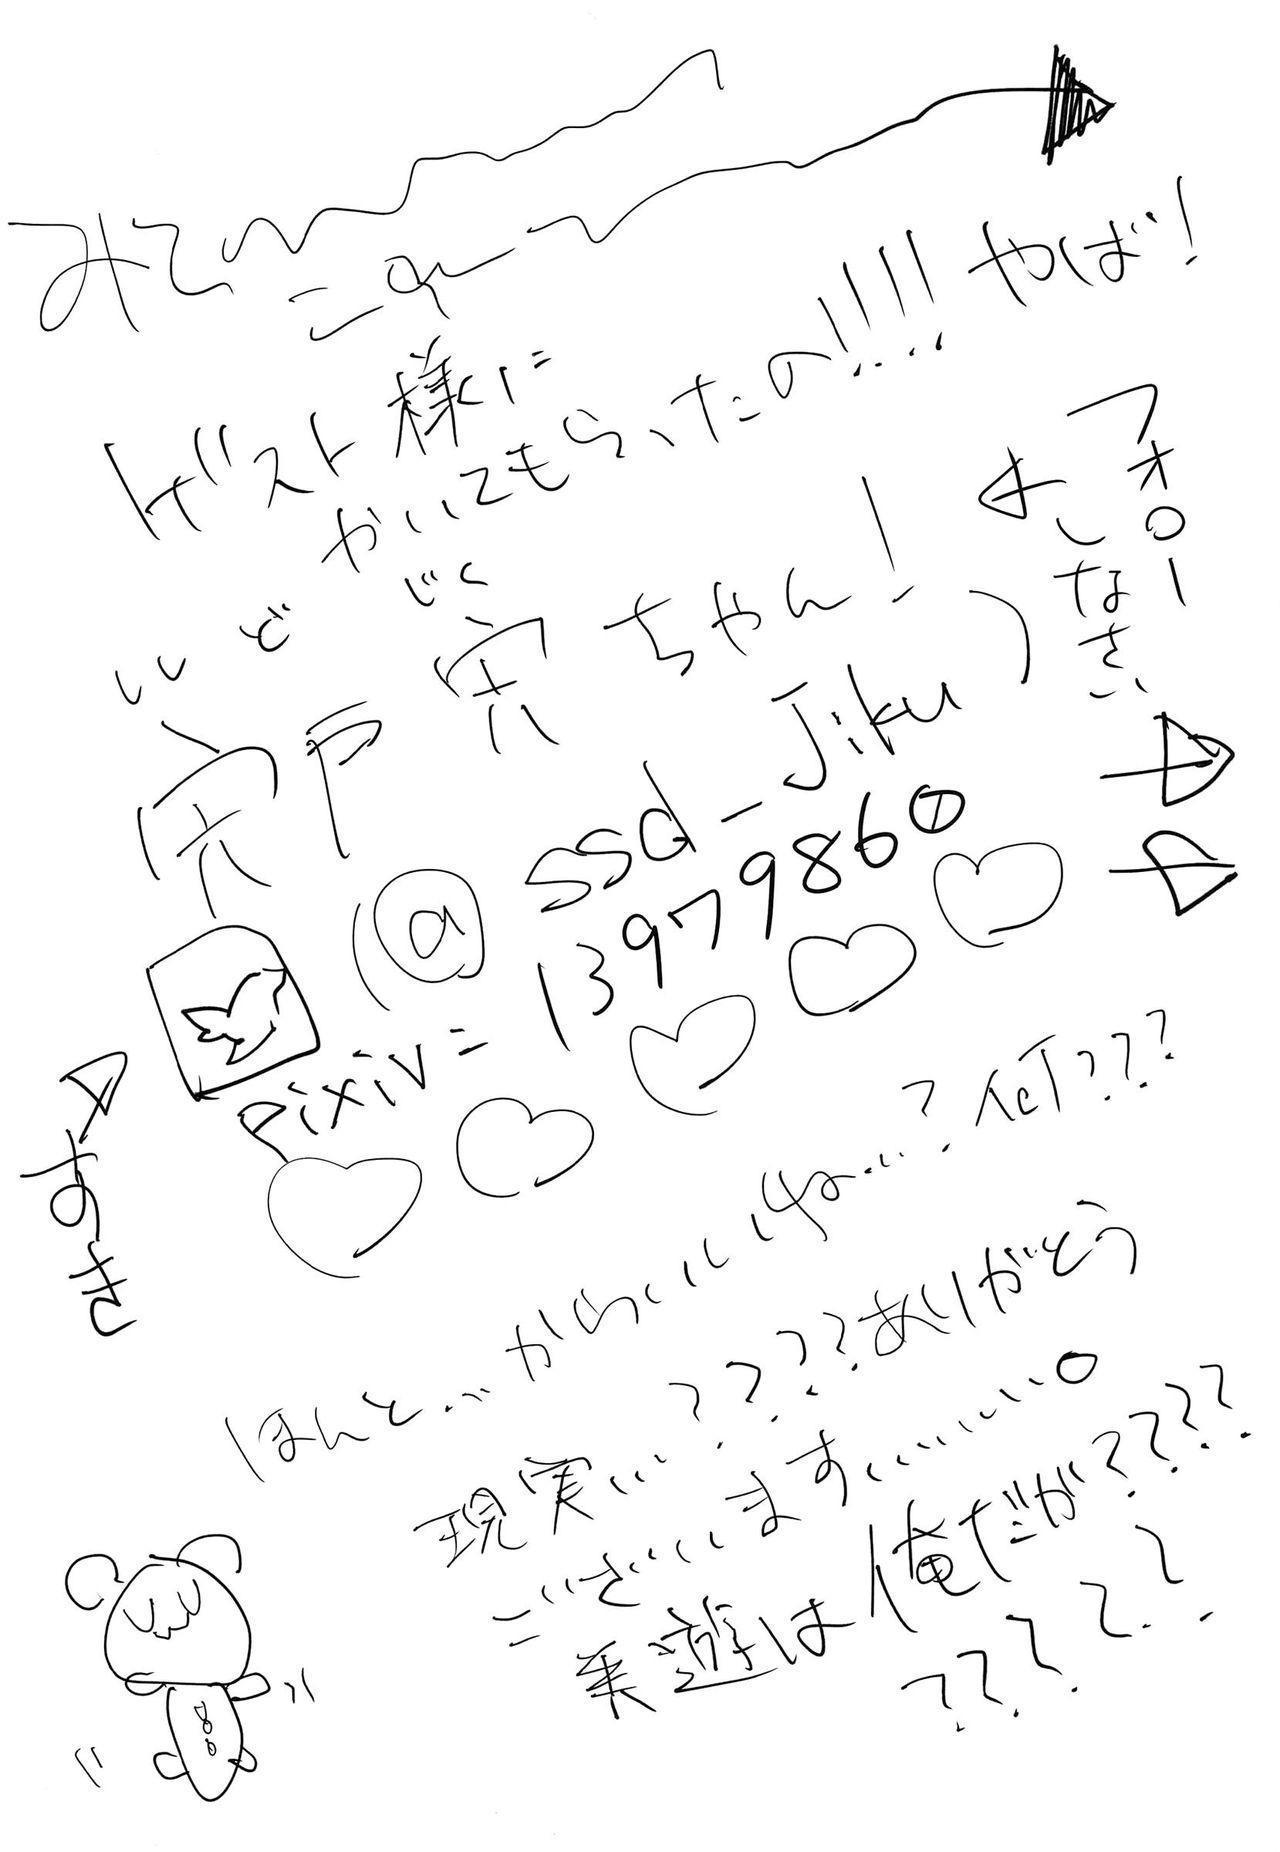 みて
これ
ゲスト様に
かいてもらったの!!!! やば!
フォロー
しなさい
ししど じく
宍戸 宍ちゃん!
(@ssd_Jiku)
pixiv=13979860
すき
ほんと…かわいいね…?何???
現実…????ありがとう
ございます……。
美遊は俺だが????
??????